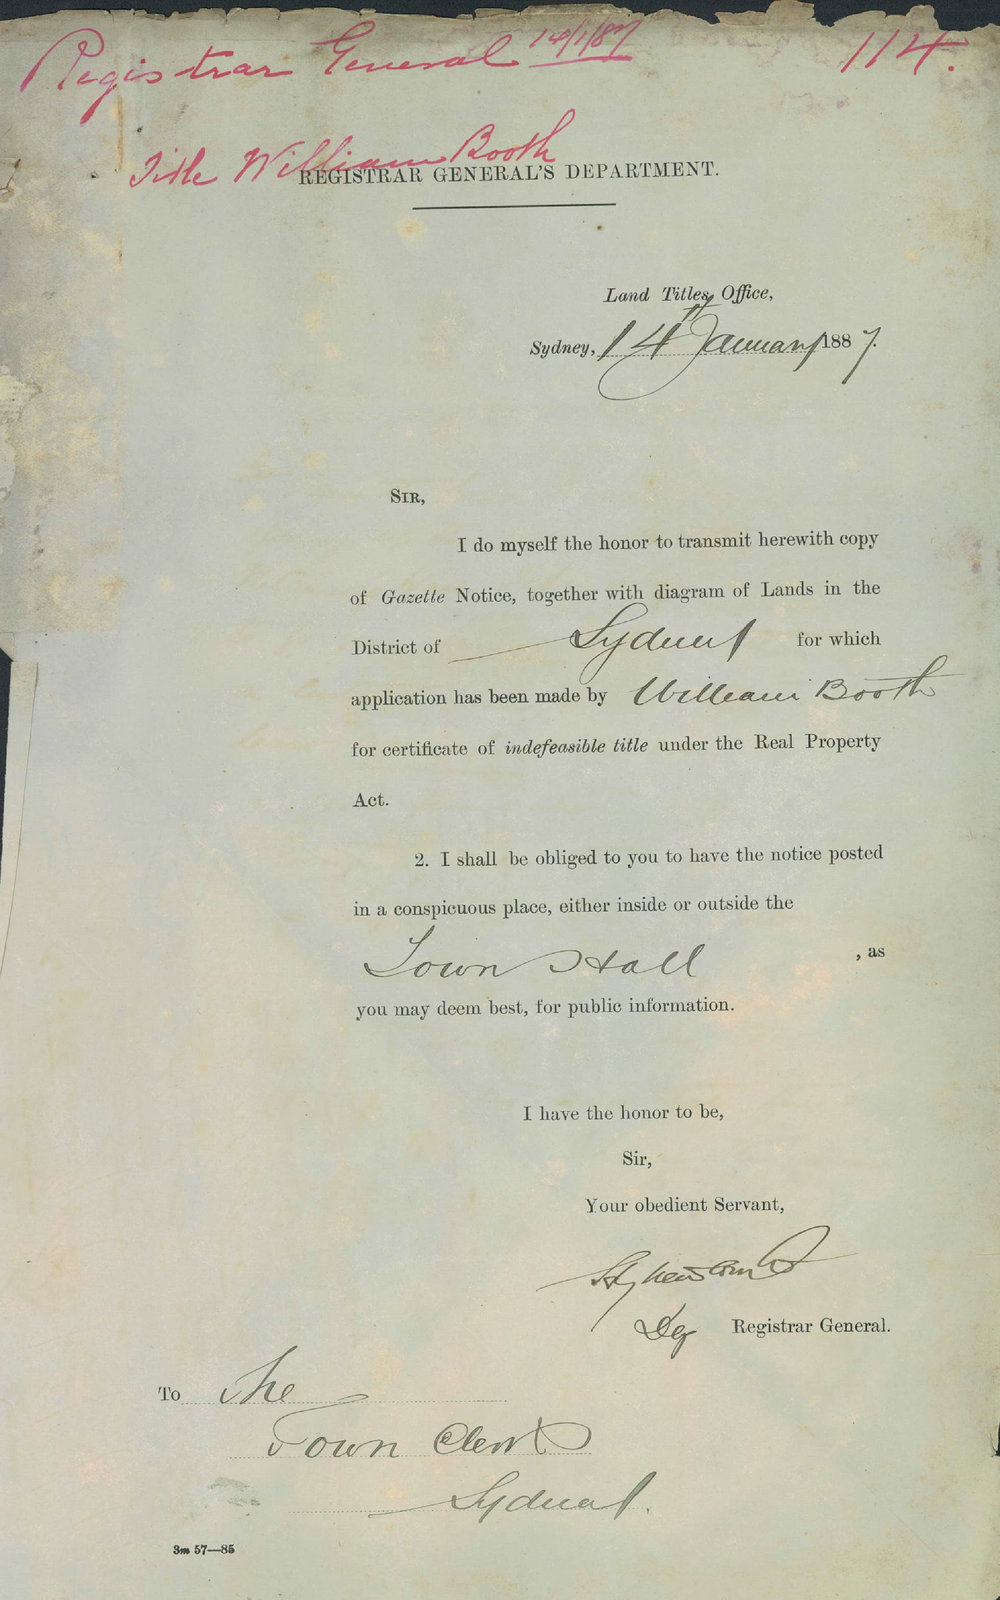 Registrar General 14/1/87 114.
Title William Booth
REGISTRAR GENERAL'S DEPARTMENT.
Land Titles Office,
Sydney, 14th January 1887.
SIR,
I do myself the honor to transmit herewith copy
of Gazette Notice, together with diagram of Lands in the
District of Sydney for which
application has been made by William Booth
for certificate of indefeasible title under the Real Property
Act.
2. I shall be obliged to you to have the notice posted
in a conspicuous place, either inside or outside the
Town Hall , as
you may deem best, for public information.
I have the honor to be,
Sir,
Your obedient Servant,
Registrar General.
To The
Town Clerk
Sydney.
3m 57—85